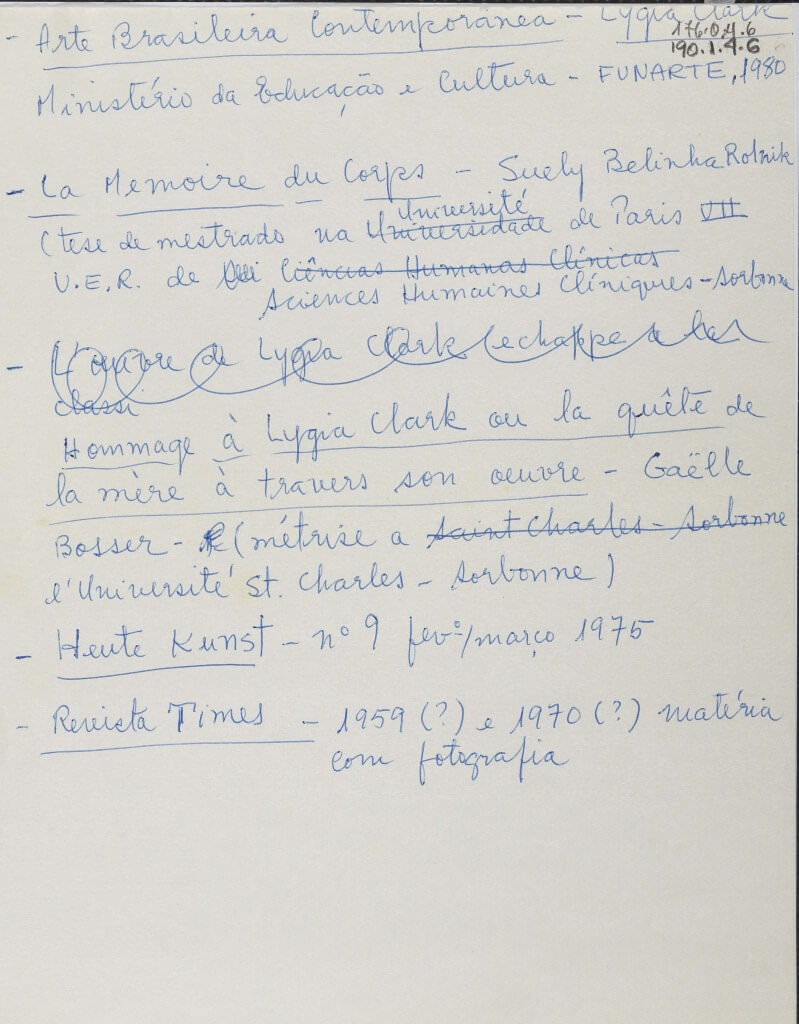 - Arte Brasileira Contemporânea - Lygia Clark
176.0.4.6
190.1.4.6
Ministério da Educação e Cultura - FUNARTE, 1980
- La Memoire du Corps - Suely Belinha Rolnik
Université
(tese de mestrado na Universidade de Paris VII
U.E.R. de Ciências Humanas Clínicas
Sciences Humaines Cliniques - Sorbonne
- L'ouvre de Lygia Clark echappe a
classi
Hommage à Lygia Clark ou la quête de
la mère à travers son oeuvre - Gaëlle
Bosser - (métrise a Saint Charles - Sorbonne
l'Université St. Charles - Sorbonne)
- Heute Kunst - nº 9 fevº/março 1975
- Revista Times - 1959 (?) e 1970 (?) matéria
com fotografia